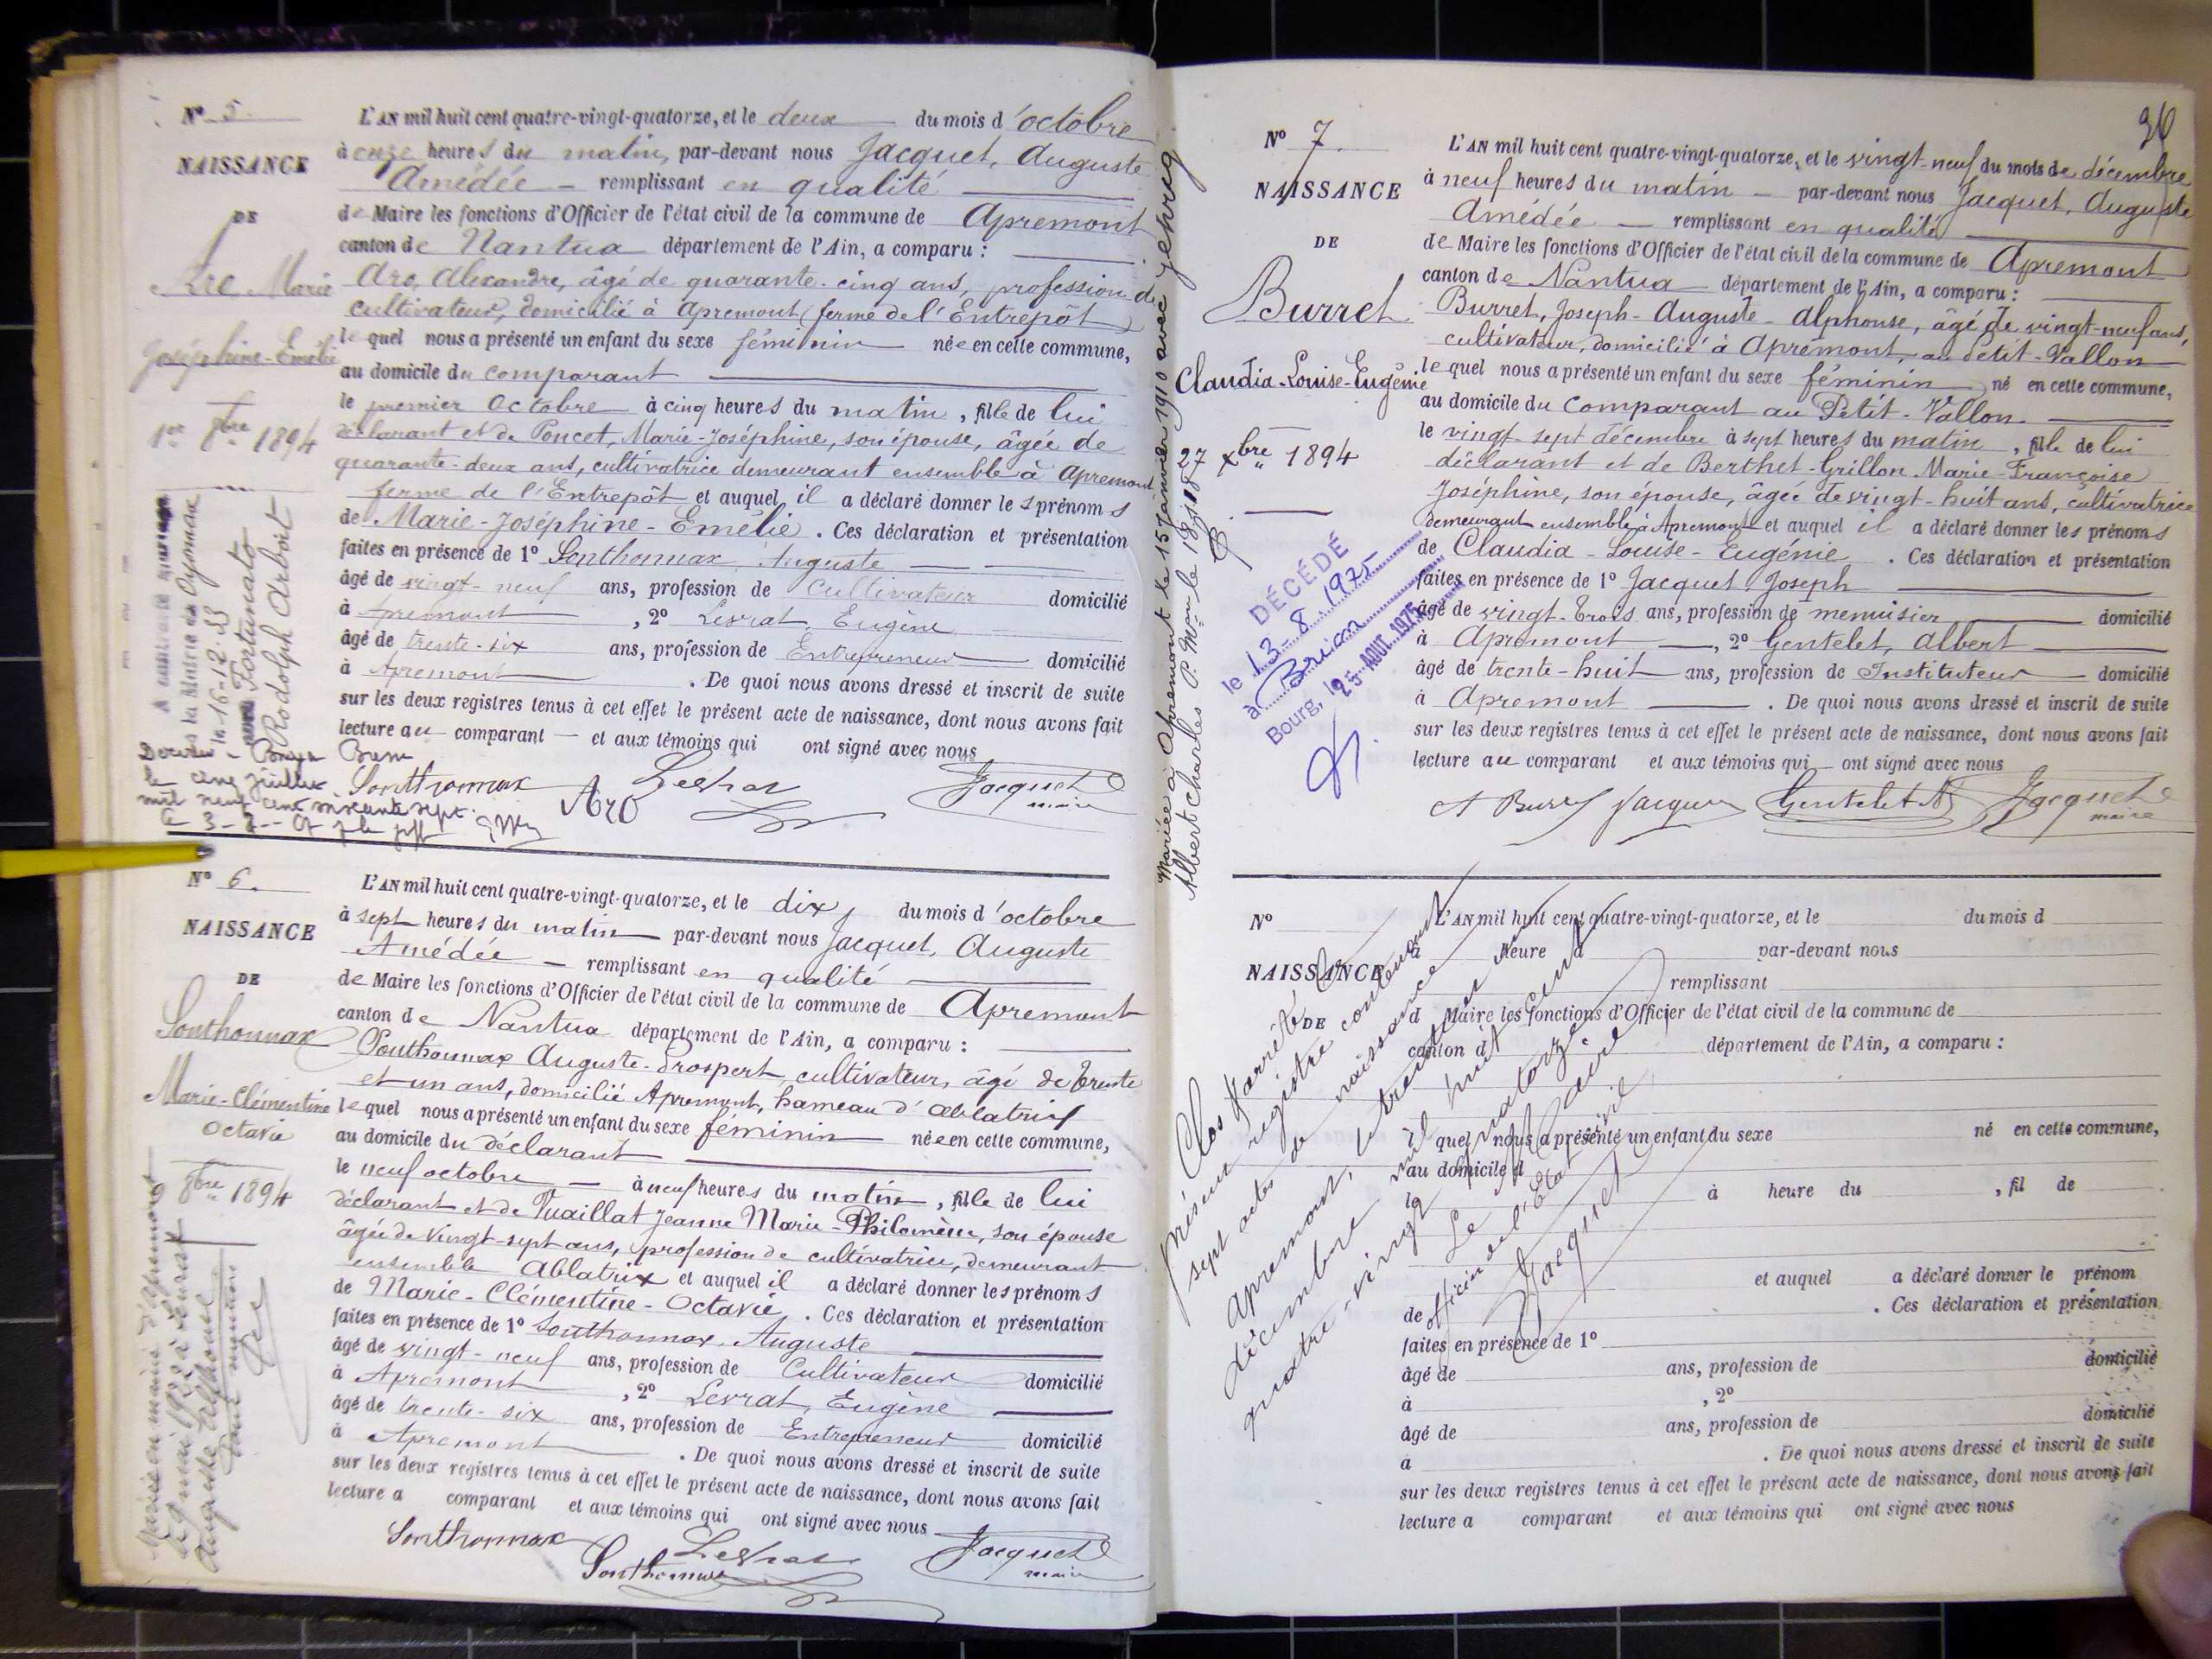 N° 5.
NAISSANCE
DE
Arc Marie
Joséphine-Emélie
1er 8bre 1894
L'AN mil huit cent quatre-vingt-quatorze, et le deux du mois d'octobre
à onze heures du matin, par-devant nous Jacquet, Auguste
Amédée — remplissant en qualité
de Maire les fonctions d'Officier de l'état civil de la commune de Apremont
canton de Nantua département de l'Ain, a comparu :
Arc, Alexandre, âgé de quarante-cinq ans, profession de
cultivateur, domicilié à Apremont (ferme de l'Entrepôt)
lequel nous a présenté un enfant du sexe féminin née en cette commune,
au domicile du comparant
le premier Octobre à cinq heures du matin, fille de lui
déclarant et de Poncet, Marie-Joséphine, son épouse, âgée de
quarante-deux ans, cultivatrice demeurant ensemble à Apremont
ferme de l'Entrepôt et auquel il a déclaré donner les prénoms
de Marie-Joséphine-Emélie. Ces déclaration et présentation
faites en présence de 1° Sonthonnax, Auguste
âgé de vingt-neuf ans, profession de Cultivateur domicilié
à Apremont, 2° Levrat, Eugène
âgé de trente-six ans, profession de Entrepreneur domicilié
à Apremont. De quoi nous avons dressé et inscrit de suite
sur les deux registres tenus à cet effet le présent acte de naissance, dont nous avons fait
lecture au comparant — et aux témoins qui ont signé avec nous
Sonthonnax Arc Levrat Jacquet
maire
A contracté mariage
à la Mairie de Oyonnax
le 16-12-33
avec Fortunato
Rodolph Arboit
Bresse
le cinq juillet
mil neuf cent soixante sept.
N° 6.
NAISSANCE
DE
Sonthonnax
Marie-Clémentine
Octavie
9 8bre 1894
L'AN mil huit cent quatre-vingt-quatorze, et le dix du mois d'octobre
à sept heures du matin par-devant nous Jacquet, Auguste
Amédée — remplissant en qualité
de Maire les fonctions d'Officier de l'état civil de la commune de Apremont
canton de Nantua département de l'Ain, a comparu :
Sonthonnax Auguste-Prospert, cultivateur, âgé de trente
et un ans, domicilié Apremont, hameau d'Ablatrix
lequel nous a présenté un enfant du sexe féminin née en cette commune,
au domicile du déclarant
le neuf octobre — à neuf heures du matin, fille de lui
déclarant et de Tuaillat Jeanne Marie-Philomène, son épouse
âgée de vingt-sept ans, profession de cultivatrice, demeurant
ensemble Ablatrix et auquel il a déclaré donner les prénoms
de Marie-Clémentine-Octavie. Ces déclaration et présentation
faites en présence de 1° Sonthonnax, Auguste
âgé de vingt-neuf ans, profession de Cultivateur domicilié
à Apremont, 2° Levrat, Eugène
âgé de trente-six ans, profession de Entrepreneur domicilié
à Apremont. De quoi nous avons dressé et inscrit de suite
sur les deux registres tenus à cet effet le présent acte de naissance, dont nous avons fait
lecture a comparant et aux témoins qui ont signé avec nous
Sonthonnax Levrat Jacquet
Sonthonnax maire
36
N° 7.
NAISSANCE
DE
Burret
Claudia-Louise-Eugénie
27 xbre 1894
Mariée à Apremont le 15 janvier 1910 avec
Albert Charles
DÉCÉDÉ
le 13-8-1975
à Brion
Bourg, le 25 AOUT 1975
L'AN mil huit cent quatre-vingt-quatorze, et le vingt-neuf du mois de décembre
à neuf heures du matin — par-devant nous Jacquet, Auguste
Amédée — remplissant en qualité
de Maire les fonctions d'Officier de l'état civil de la commune de Apremont
canton de Nantua département de l'Ain, a comparu :
Burret, Joseph-Auguste-Alphonse, âgé de vingt-neuf ans,
cultivateur, domicilié à Apremont, au Petit-Vallon
lequel nous a présenté un enfant du sexe féminin né en cette commune,
au domicile du comparant au Petit-Vallon
le vingt-sept décembre à sept heures du matin, fille de lui
déclarant et de Berthet-Grillon Marie-Françoise
Joséphine, son épouse, âgée de vingt-huit ans, cultivatrice
demeurant ensemble à Apremont et auquel il a déclaré donner les prénoms
de Claudia-Louise-Eugénie. Ces déclaration et présentation
faites en présence de 1° Jacquet Joseph
âgé de vingt-trois ans, profession de menuisier domicilié
à Apremont —, 2° Gentelet, Albert
âgé de trente-huit ans, profession de Instituteur domicilié
à Apremont. De quoi nous avons dressé et inscrit de suite
sur les deux registres tenus à cet effet le présent acte de naissance, dont nous avons fait
lecture au comparant et aux témoins qui ont signé avec nous
A Burret Jacquet Gentelet A Jacquet
maire
N°
NAISSANCE
DE
L'AN mil huit cent quatre-vingt-quatorze, et le du mois d
à heure d par-devant nous
remplissant
d Maire les fonctions d'Officier de l'état civil de la commune de
canton d département de l'Ain, a comparu :
l quel nous a présenté un enfant du sexe né en cette commune,
au domicile d
le à heure du , fil de
et auquel a déclaré donner le prénom
de . Ces déclaration et présentation
faites en présence de 1°
âgé de ans, profession de domicilié
à , 2°
âgé de ans, profession de domicilié
à . De quoi nous avons dressé et inscrit de suite
sur les deux registres tenus à cet effet le présent acte de naissance, dont nous avons fait
lecture a comparant et aux témoins qui ont signé avec nous
Clos et arrêté le
présent registre contenant
sept actes de naissance
Apremont, le trente un
décembre mil huit cent
quatre-vingt quatorze
Le Maire
officier de l'État civil
Jacquet